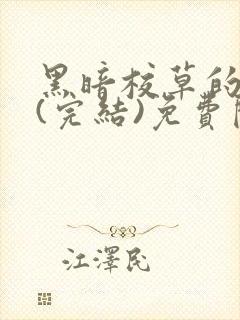 黑暗校草的
(完結)免費
江澤民